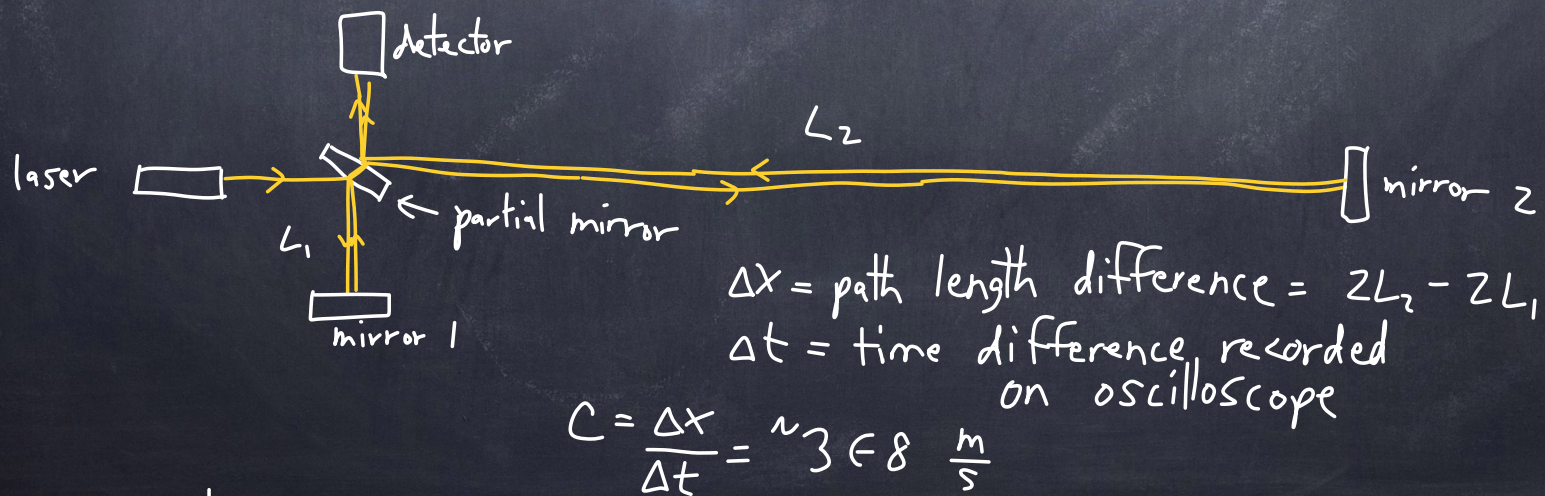 detector
L₂
laser
mirror 2
partial mirror
L₁
mirror 1
Δx = path length difference = 2L₂ - 2L₁
Δt = time difference, recorded
on oscilloscope
C = Δx/Δt = ~3 E 8 m/s